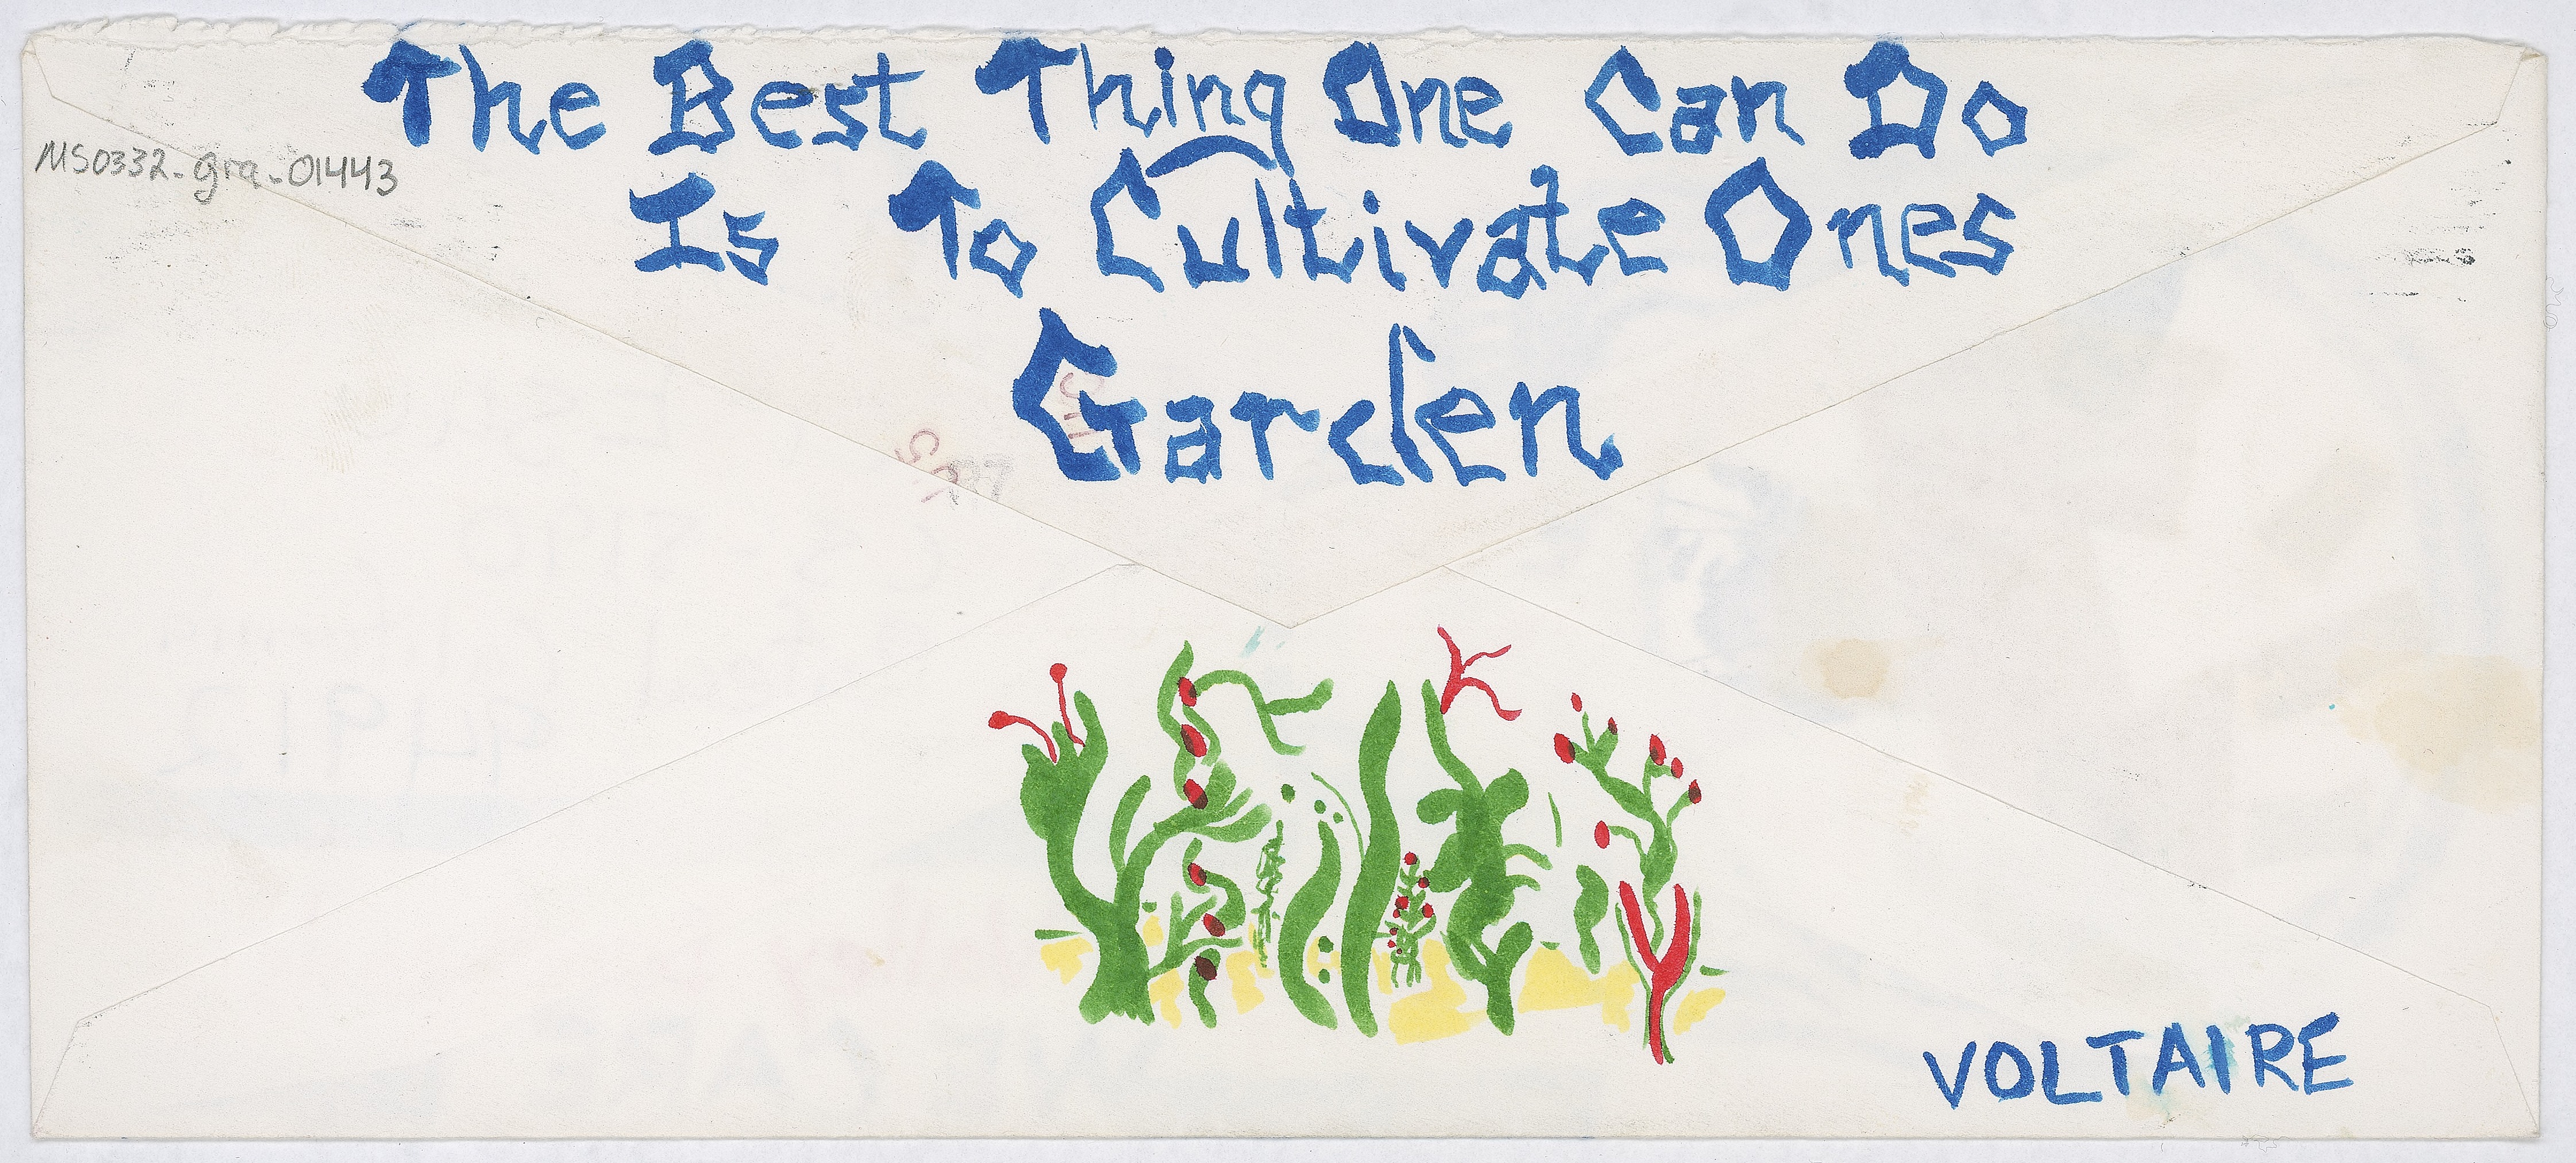 The Best Thing One Can Do
MS0332-gra-01443
Is To Cultivate Ones
Garden
VOLTAIRE